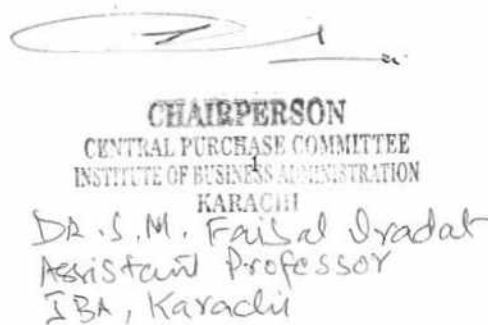 CHAIRPERSON
CENTRAL PURCHASE COMMITTEE
1
INSTITUTE OF BUSINESS ADMINISTRATION
KARACHI
DR. S. M. Faisal Iradat
Assistant Professor
IBA, Karachi